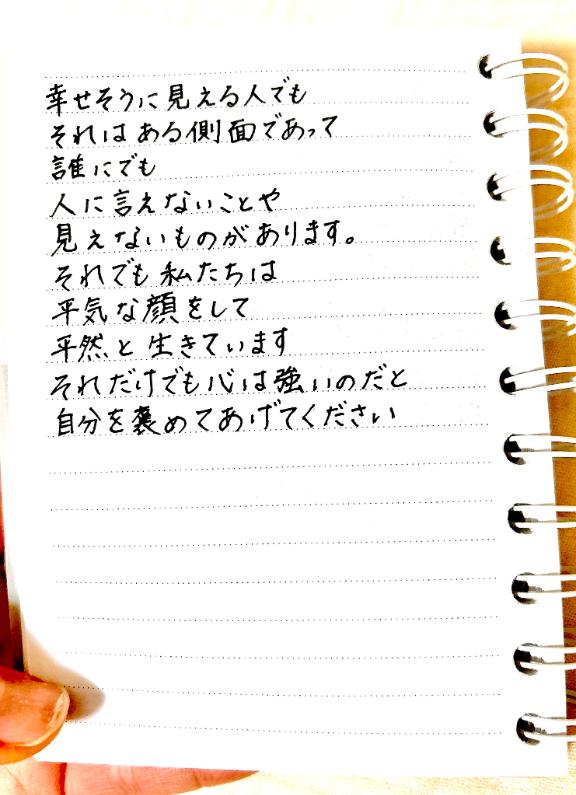 幸せそうに見える人でも
それはある側面であって
誰にでも
人に言えないことや
見えないものがあります。
それでも私たちは
平気な顔をして
平然と生きています
それだけでも心は強いのだと
自分を褒めてあげてください